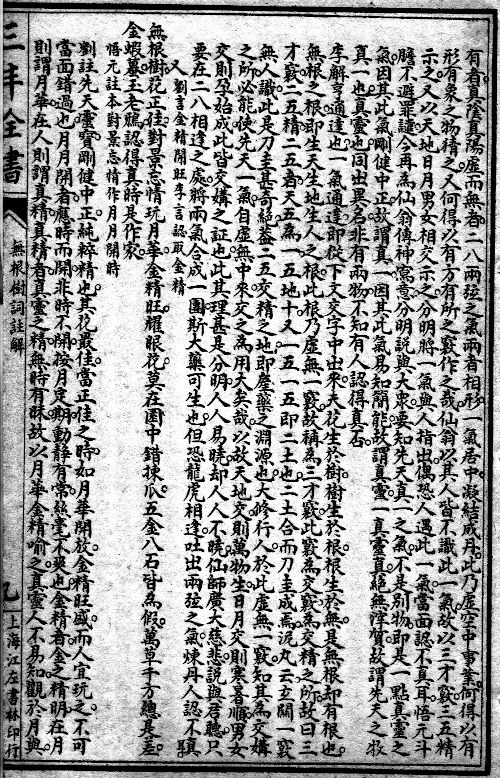 有者真陰真陽虛而無者二八兩弦之氣兩者相形一氣居中凝結成丹此乃虛空中事業何得以有
形有象之物積之又何得以有方有所之竅作之哉仙翁以其人皆不識此一氣故以三才竅二五精
示之又以天地日月男女相交示之分明將一氣與人指出偶恐人遇此一氣當面認不真耳悟元斗
膽不避罪譴今再為仙翁傳神寫意分明說與大衆要知先天真一之氣不是別物即是一點真靈之
氣因其此氣剛健中正故謂真一因其此氣易知簡能故謂真靈一真靈真絕無浮質故謂先天之氣
真一也真靈也同出異名非有兩物不知有人認得真否
李解亨通達也一氣通達即從下文交字中出來夫花生於樹樹生於根根生於無是無根卻有根也
無根之根即生天生地生人之根此根乃虛無一竅故稱為三才竅此竅為交竅為交精之所故曰三
才竅二五精二五者天五為一五地十又一五一五即二土也二土合而刀圭成焉泥丸云玄關一竅
無人識此是刀圭甚奇絕蓋二五交精之地即產藥之淵源也大修行人於此虛無一竅知其為交媾
之所必能使先天一氣自虛無中來交之為用大矣哉以故天地交則萬物生日月交則寒暑順男女
交則孕始成此皆交媾之証也此其理甚是分明人人易曉卻人人不曉仙師廣大慈悲說與君聽只
要在二八相逢之處將兩氣合成一團斯大藥可生也但恐龍虎相逢吐出兩弦之氣煉丹人認不真
又 劉言金精開旺李言認取金精
無根樹花正佳對景忘情玩月華金精旺耀眼花莫在園中錯揀瓜五金八石皆為假萬草千方總是差
金蝦蟇玉老鴉認得真時是作家
悟元註本對景忘情作月月開時
劉註先天靈寶剛健中正純粹精也其花最佳當正佳之時如月華開放金精旺盛而人宜玩之不可
當面錯過也月月開者應時而開非時不開按月定期動靜有常絲毫不爽也金精者金之精明在月
則謂月華在人則謂真精真精者真靈之精無時有昧故以月華金精喻之真靈人不易知觀於月與
三丰全書
無根樹詞註解
九
上海江左書林印行